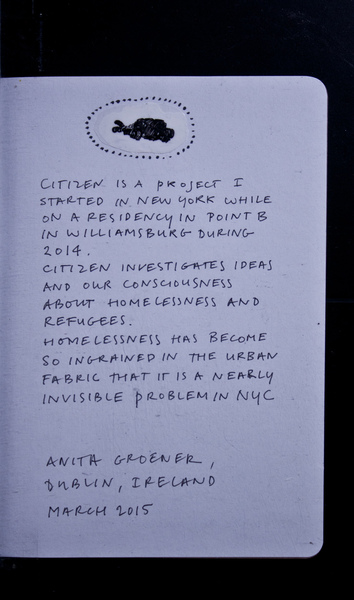 CITIZEN IS A PROJECT I
STARTED IN NEW YORK WHILE
ON A RESIDENCY IN POINT B
IN WILLIAMSBURG DURING
2014.
CITIZEN INVESTIGATES IDEAS
AND OUR CONSCIOUSNESS
ABOUT HOMELESSNESS AND
REFUGEES.
HOMELESSNESS HAS BECOME
SO INGRAINED IN THE URBAN
FABRIC THAT IT IS A NEARLY
INVISIBLE PROBLEM IN NYC
ANITA GROENER,
DUBLIN, IRELAND
MARCH 2015